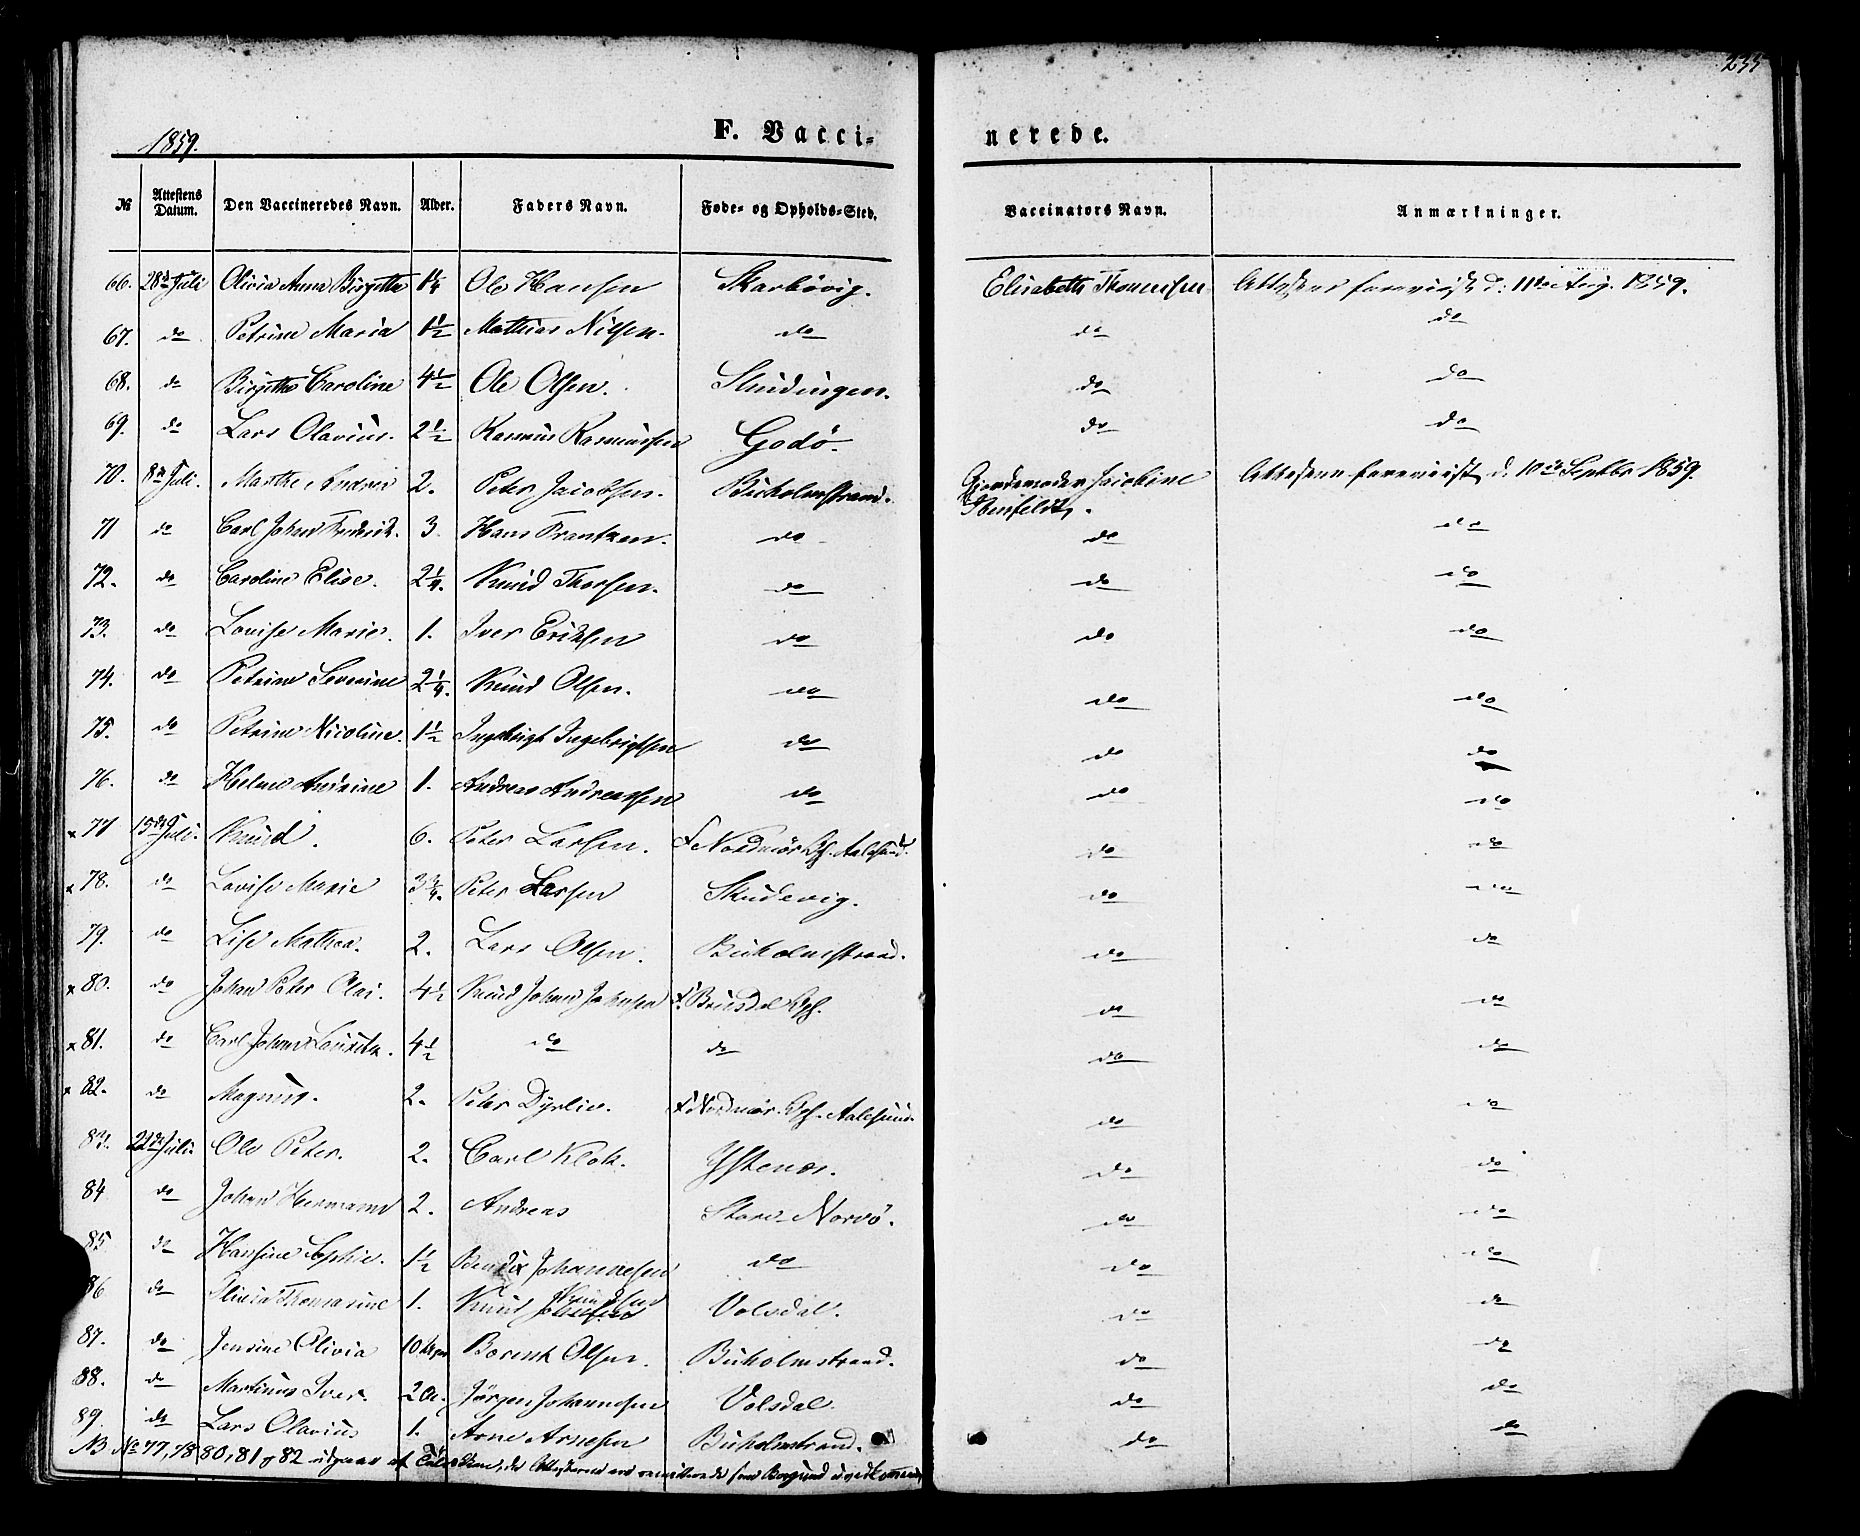 233
1859.
F. Vacci-
nerede.
№ Attestens Datum. Den Vaccineredes Navn. Alder. Faders Navn. Føde- og Opholds-Sted. Vaccinators Navn. Anmærkninger.
66. 28de Juli Olivia Anna Birgitta 1 1/4 Ole Hansen Skarbövig. Elisabeth Thomessen Attesten foreviist d: 11te Aug. 1859.
67. do Petrine Maria 1 1/2 Mathias Nilsen. do do do
68. do Birgitte Caroline 4 1/2 Ole Olsen. Slindingen. do do
69. do Lars Olavius. 2 1/2 Rasmus Rasmussen Godö. do do
70. 8de Juli. Marthe Andrea 2. Peter Jacobsen. Buholmstrand. Gjordemoder Jacobine Attesten foreviist d. 10de Septbr 1859.
Stenfeldt.
71 do Carl Johan Fredrick. 3. Hans Frantzen. do do do
72. do Caroline Elise. 2 1/4. Knud Thorsen. do do do
73. do Lovise Marie. 1. Iver Eriksen do do do
74. do Petrine Severine 2 1/4. Knud Olsen. do do do
75. do Petrine Nicoline. 1 1/2 Ingebrigt Ingebrigtsen do do do
76. do Helene Andrine 1. Andreas Andreassen do do do
x 77 15de Juli. Knud. 6. Peter Larsen. F. Nordmör Oph. Aalesund. do do
x 78. do Lovise Marie 3 3/4. Peter Larsen Skudevig. do do
79. do Lise Mathea. 2. Lars Olsen. Buholmstrand. do do
x 80. do Johan Peter Olai. 4 1/2 Knud Johan Johnsen F. Oph. do do
x 81. do Carl Johan Lauritz. 4 1/2 do do do do
x 82. do Magnus. 2. Peter Dyrlie. F. Nordmör. Oph. Aalesund. do do
83. 22de Juli. Ole Peter. 2. Carl Klok. Ystenes. do do
84 do Johan Hermann 2. Andreas Store Norvö. do do
85 do Hansine Sophie. 1 1/2 Bendix Johannesen do do do
86 do Olivia Thomasine 1. Knud Knudsen Volsdal. do do
87. do Jensine Olivia 10 Bernt Olsen. Buholmstrand. do do
88. do Martinus Iver 2 a. Jörgen Johannesen Volsdal. do do
89. do Lars Olavius 1. Arne Arnesen Buholmstrand. do do
NB No 77, 78 80, 81 & 82 udgaaer af da Attesterne ere som Borgund uvedkommende